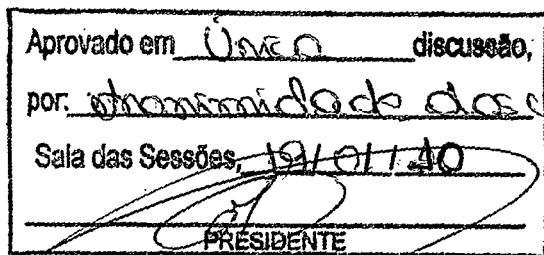 Aprovado em Única discussão,
por: unanimidade dos
Sala das Sessões, 19/01/10
PRESIDENTE